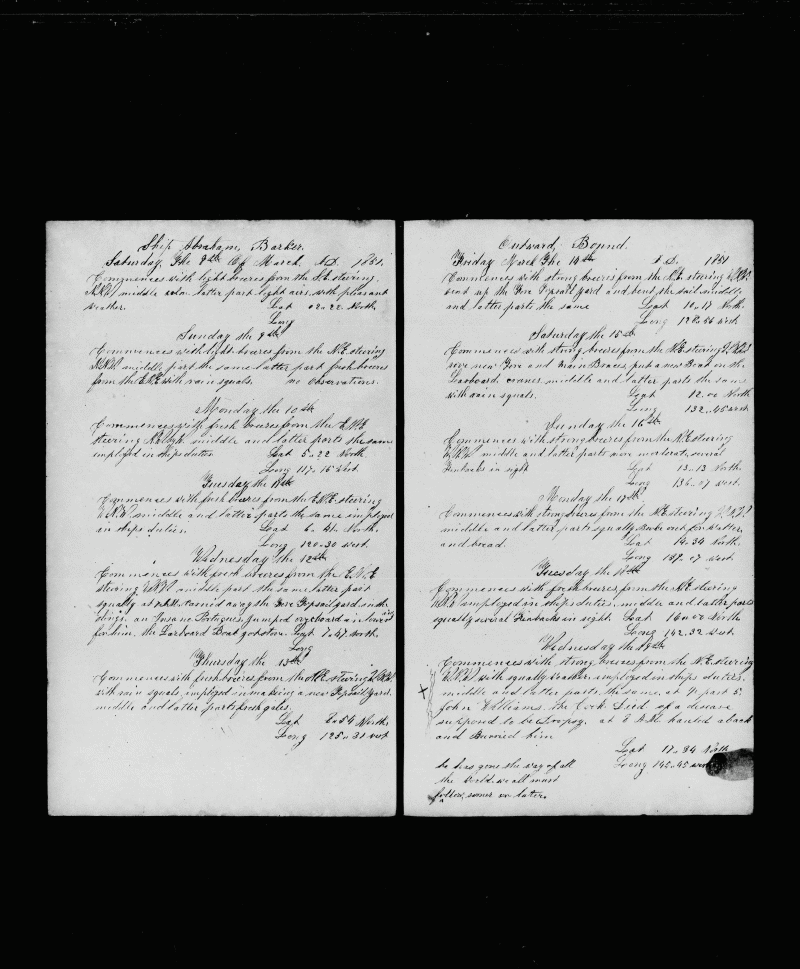 Ship Abraham, Barker.
Saturday, The 8th Of March, AD. 1851.
Commences with light breeses from the S.E steering
N.N.W. middle calm latter part light airs with pleasant
weather. Lat 02.22 North.
Long
Sunday the 9th
Commences with light breeses from the N.E steering
N.N.W. middle part the same latter part fresh breeses
from the E.N.E with rain squals. no observations.
Monday the 10th
Commences with fresh breeses from the E.N.E
steering middle and latter parts the same
imployed in ships duties Lat 5.22 North.
Long 117.15 West.
Tuesday the 11th
Commences with fresh breeses from the E.N.E. steering
W.N.W. middle and latter parts the same imployed
in ships duties. Lat 6.41 North.
Long 120.30 west.
Wednesday the 12th
Commences with fresh breeses from the E.N.E
steering W.N.W. middle part the same latter part
squally at carried away the Fore Topsail yard in the
slings. an Insane Portugues, jumped overboard
for him, the Larboard Boat got stove. Lat 7.47 North.
Long
Thursday the 13th
Commences with fresh breeses from the N.E steering W.N.W.
with rain squals, imployed in making a new Topsail Yard.
middle and latter parts fresh gales.
Lat 8.54 North
Long 125.31 west
Outward, Bound.
Friday March The 14th A.D. 1851
Commences with strong breeses from the N.E steering W.N.W.
sent up the Fore Topsail yard and bent the sail middle
and latter parts the same Lat 10.17 North.
Long 128.56 West
Saturday the 15th
Commences with strong breeses from the N.E steering W.N.W.
rove new Fore and Main Braces, put a new Boat on the
Larboard cranes middle and latter parts the same
with rain squals. Lat 12.00 North
Long 132.45 west
Sunday the 16th
Commences with strong breeses from the N.E steering
W.N.W. middle and latter parts more moderate, several
Finbacks in sight Lat 13.13 North.
Long 136.07 west.
Monday the 17th
Commences with strong breeses from the N.E steering W.N.W.
middle and latter parts squally Broke out for watter
and bread. Lat 14.34 North.
Long 139.07 west.
Tuesday the 18th
Commences with fresh breeses from the N.E steering
W.N.W. imployed in ships duties, middle and latter parts
squally several Finbacks in sight. Lat 16.00 North
Long 142.32 West.
Wednesday the 19th
Commences with strong breeses from the N.E. steering
W.N.W. with squally weather. imployed in ships duties.
middle and latter parts the same, at ½ past 5
John Williams, the Cook Died of a disease
suspond to be Dropsy. at 8 A.M. hauled aback
and Burried him
Lat 17.34 North
he has gone the way of all Long 145.45 west
the World. we all must
follow, sooner or later.